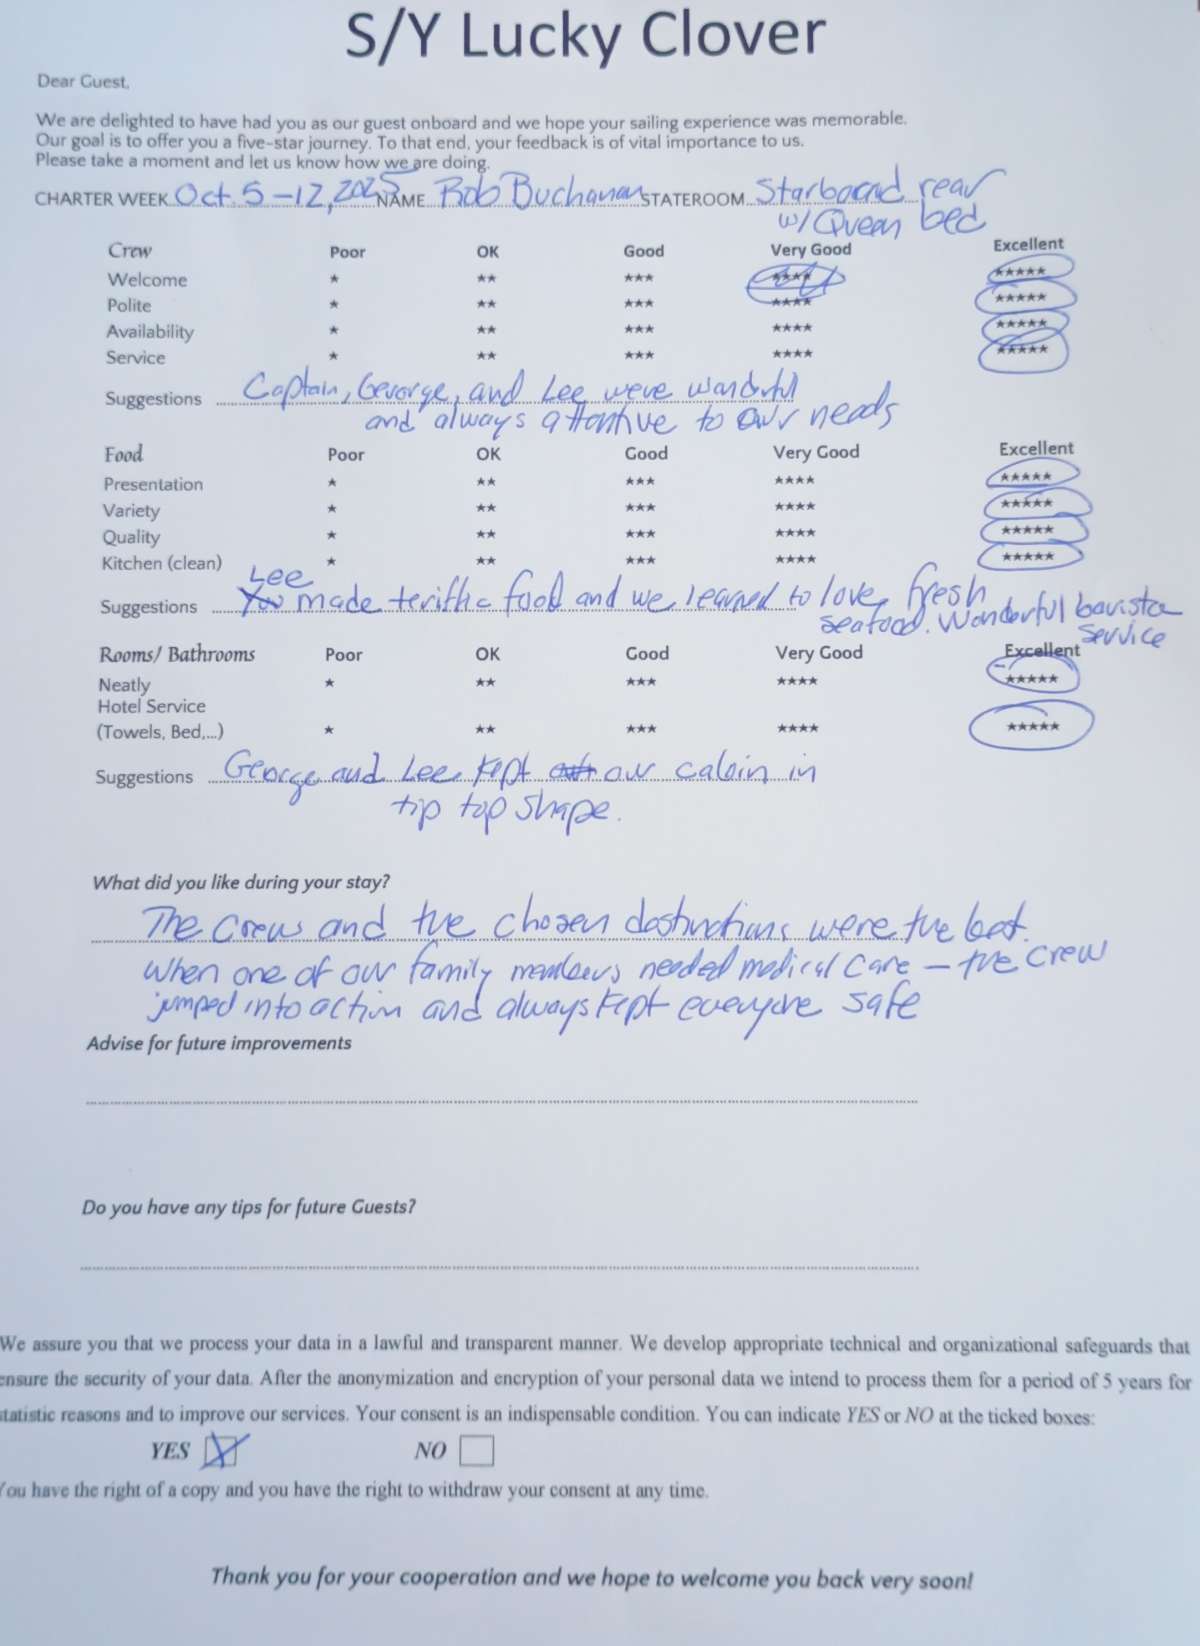 S/Y Lucky Clover
Dear Guest,
We are delighted to have had you as our guest onboard and we hope your sailing experience was memorable.
Our goal is to offer you a five-star journey. To that end, your feedback is of vital importance to us.
Please take a moment and let us know how we are doing.
CHARTER WEEK Oct 5-12, 2025 NAME Rob Buchanan STATEROOM Starboard rear
w/ Queen bed
Crew Poor OK Good Very Good Excellent
Welcome ★ ★★ ★★★ ★★★★ ★★★★★
Polite ★ ★★ ★★★ ★★★★ ★★★★★
Availability ★ ★★ ★★★ ★★★★ ★★★★★
Service ★ ★★ ★★★ ★★★★ ★★★★★
Suggestions Captain, George, and Lee were wonderful
and always attentive to our needs
Food Poor OK Good Very Good Excellent
Presentation ★ ★★ ★★★ ★★★★ ★★★★★
Variety ★ ★★ ★★★ ★★★★ ★★★★★
Quality ★ ★★ ★★★ ★★★★ ★★★★★
Kitchen (clean) ★ ★★ ★★★ ★★★★ ★★★★★
Lee
Suggestions You made teriffic food and we learned to love fresh
seafood. Wonderful barista
service
Rooms/ Bathrooms Poor OK Good Very Good Excellent
Neatly ★ ★★ ★★★ ★★★★ ★★★★★
Hotel Service
(Towels, Bed,...) ★ ★★ ★★★ ★★★★ ★★★★★
Suggestions George and Lee kept our cabin in
tip top shape.
What did you like during your stay?
The crew and the chosen destinations were the best.
When one of our family members needed medical care – the crew
jumped into action and always kept everyone safe
Advise for future improvements
Do you have any tips for future Guests?
We assure you that we process your data in a lawful and transparent manner. We develop appropriate technical and organizational safeguards that
ensure the security of your data. After the anonymization and encryption of your personal data we intend to process them for a period of 5 years for
statistic reasons and to improve our services. Your consent is an indispensable condition. You can indicate YES or NO at the ticked boxes:
YES NO
You have the right of a copy and you have the right to withdraw your consent at any time.
Thank you for your cooperation and we hope to welcome you back very soon!